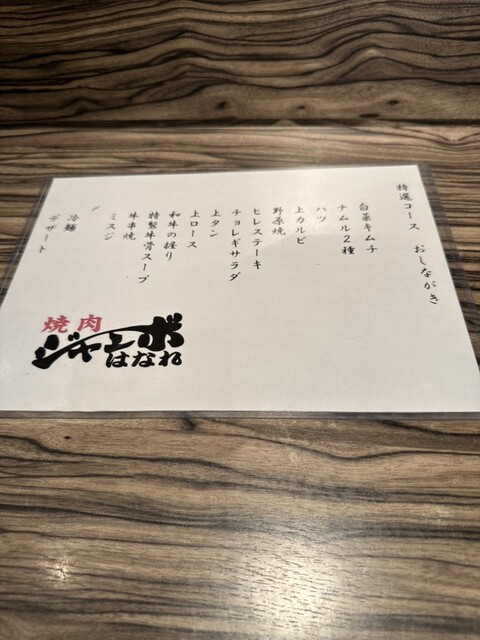 特選コース　おしながき
白菜キムチ
ナムル2種
ハツ
上カルビ
野原焼
ヒレステーキ
チョレギサラダ
上タン
上ロース
和牛の握り
特製牛骨スープ
牛串焼
ミスジ
冷麺
デザート
焼肉
ジャンボ
はなれ